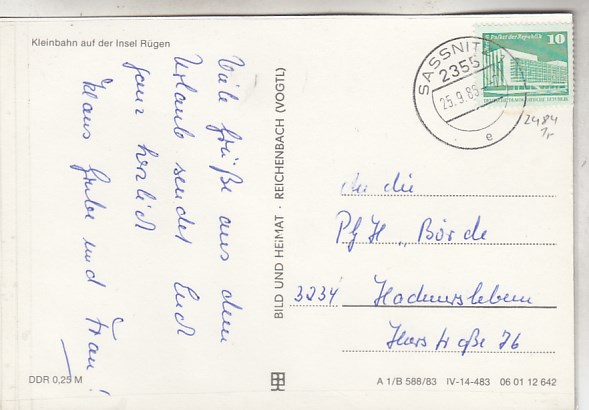 Kleinbahn auf der Insel Rügen
Viele Grüße aus dem
Urlaub sendet Euch
ganz herzlich
Klaus und Frau!
BILD UND HEIMAT · REICHENBACH (VOGTL)
SASSNITZ
2355
25.9.85
e
Palast der Republik 10
2484
An die
PGH „Börde
3234 Hadmersleben
DDR 0,25 M
A 1/B 588/83 IV-14-483 06 01 12 642